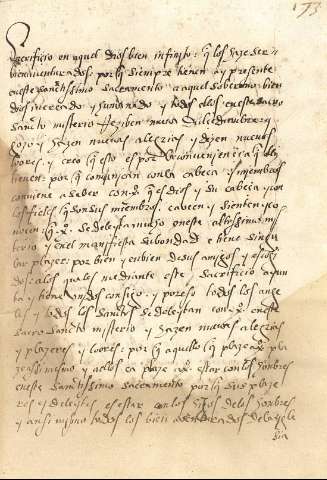 173
sacrificio en aquel dios bien infinito: q̄ los haze ser
bienaventurados: porq̄ siempre tienen ay presente
en este sanctissimo sacramento a aquel soberano bien
dios encarnado y humanado y todos ellos en este sacro
sancto misterio Reciben nueva
gozo y hazen nuevas alegrias y dizen nuevos
loores: y creo q̄ esto es por
tienen: por q̄ conjunçan con la cabeça y miembros
conviene a saber con xp̄o q̄ es dios y su cabeça y con
los fieles q̄ son sus miembros. saben y sienten y co
nocen q̄ xp̄o se deleyta mucho en este altissimo mis
terio y en el manifiesta su bondad e tiene singu
lar plazer: por bien y en bien de sus amigos y
dos: a los quales mediante este sacrificio ayun
ta y honrandos consigo: y por eso todos los ange
les y todos los sanctos se deleytan con xp̄o en este
sacro sancto misterio y hazen nuevas alegrias
y plazeres y loores: por q̄ aquello q̄ plaze a xp̄o pla
ze assimismo a ellos ca plaze a xp̄o estar con los honbres
en este sanctissimo sacramento por q̄ sus plaze
res y deleytes es estar con los hijos de los honbres
y ansi mismo todos los bien aventurados de la ygle
sia